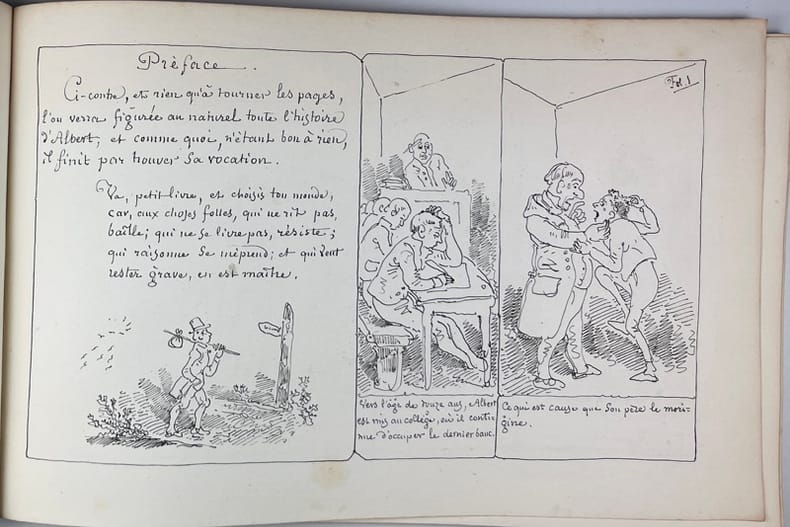 Préface.
Ci-contre, et rien qu'à tourner les pages,
l'on verra figurée au naturel toute l'histoire
d'Albert; et comme quoi, n'étant bon à rien,
il finit par trouver sa vocation.
Va, petit livre, et choisis ton monde,
car, aux choses folles, qui ne rit pas,
baille; qui ne se livre pas, résiste;
qui raisonne se méprend; et qui veut
rester grave, en est maître.
Vers l'âge de douze ans, Albert
est mis au collège, où il conti-
nue d'occuper le dernier banc.
Fol. 1
Ce qui est cause que son père le mori-
gine.